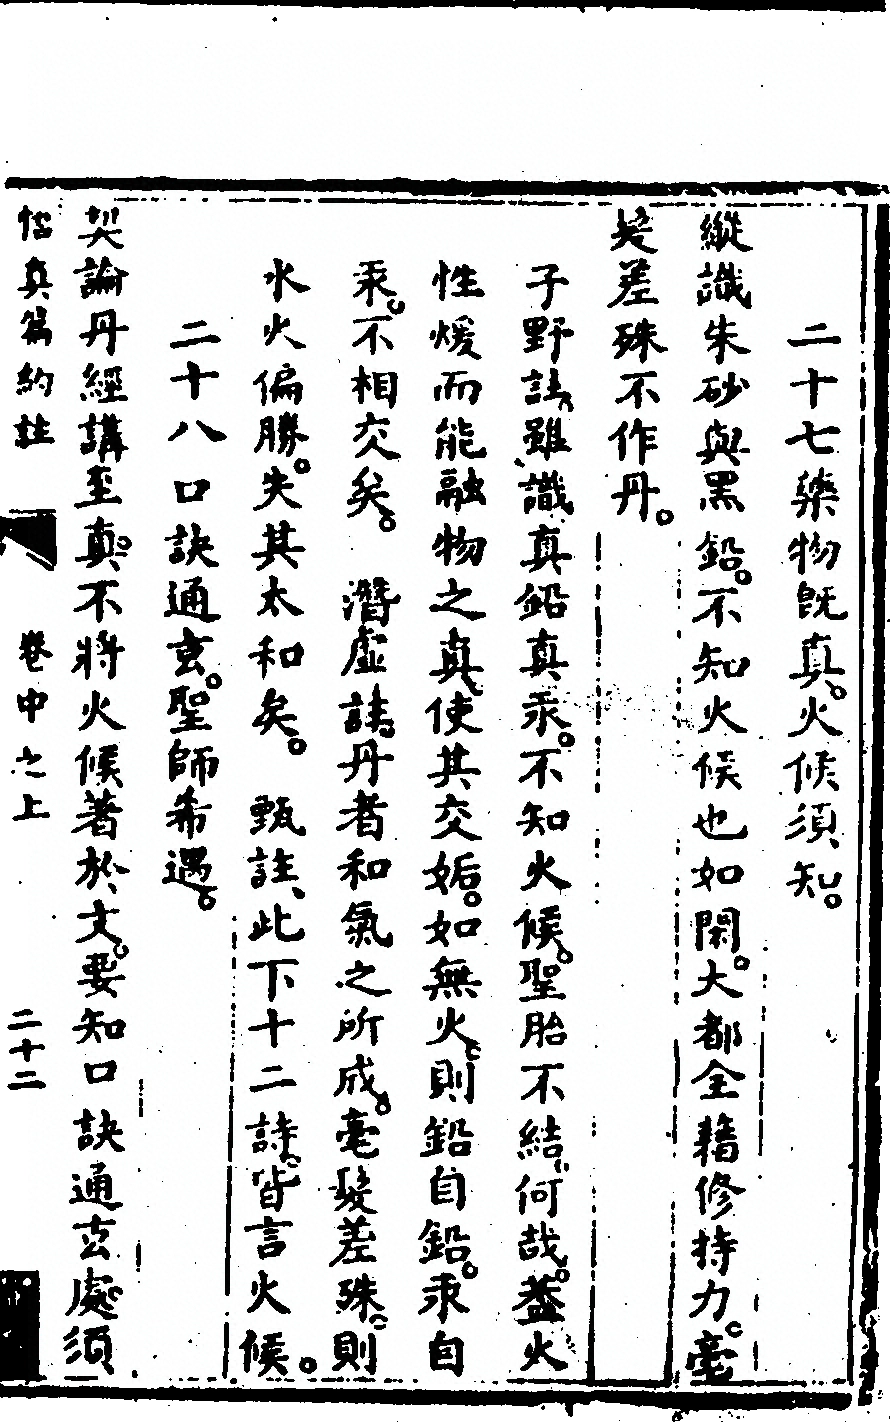 二十七藥物既真。火候須知。
縱識朱砂與黑鉛。不知火候也如閑。大都全藉修持力。毫
髮差殊不作丹。
子野註、雖識真鉛真汞。不知火候。聖胎不結、何哉。蓋火
性煖而能融物之真、使其交姤。如無火、則鉛自鉛。汞自
汞。不相交矣。 潛虛註。丹者和氣之所成。毫髮差殊。則
水火偏勝。失其太和矣。 甄註、此下十二詩。皆言火候。
二十八口訣通玄。聖師希遇。
契論丹經講至真。不將火候著於文。要知口訣通玄處。須
悟真篇約註 卷中之上 二十二